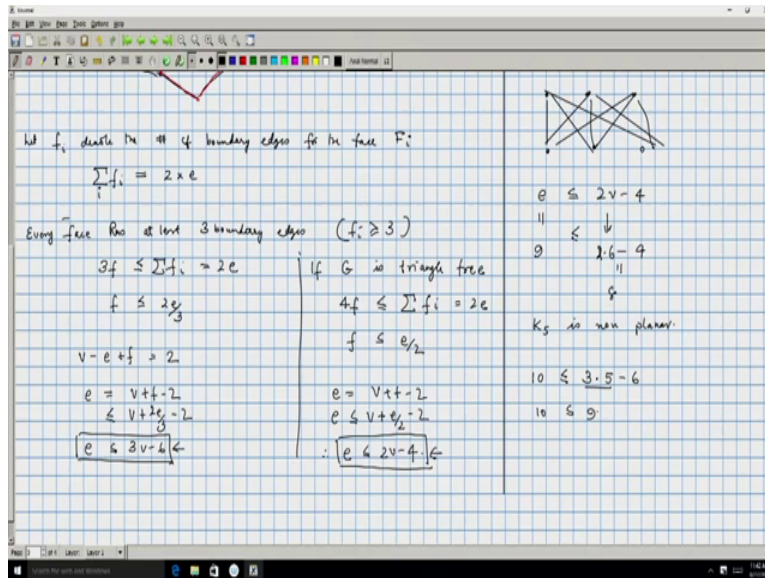 File Edit View Page Tools Options Help
Let fi denote the # of boundary edges for the face Fi
∑ fi = 2 × e
i
Every face has at least 3 boundary edges (fi ≥ 3)
3f ≤ ∑fi = 2e
f ≤ 2e/3
v - e + f = 2
e = v + f - 2
≤ v + 2e/3 - 2
e ≤ 3v - 6 ←
If G is triangle free
4f ≤ ∑ fi = 2e
f ≤ e/2
e = v + f - 2
e ≤ v + e/2 - 2
∴ e ≤ 2v - 4 ←
e ≤ 2v - 4
|| ≤ ↓
9 2·6 - 4
||
8
K5 is non planar.
10 ≤ 3·5 - 6
10 ≤ 9
Page 3 of 4 Layer: Layer 1